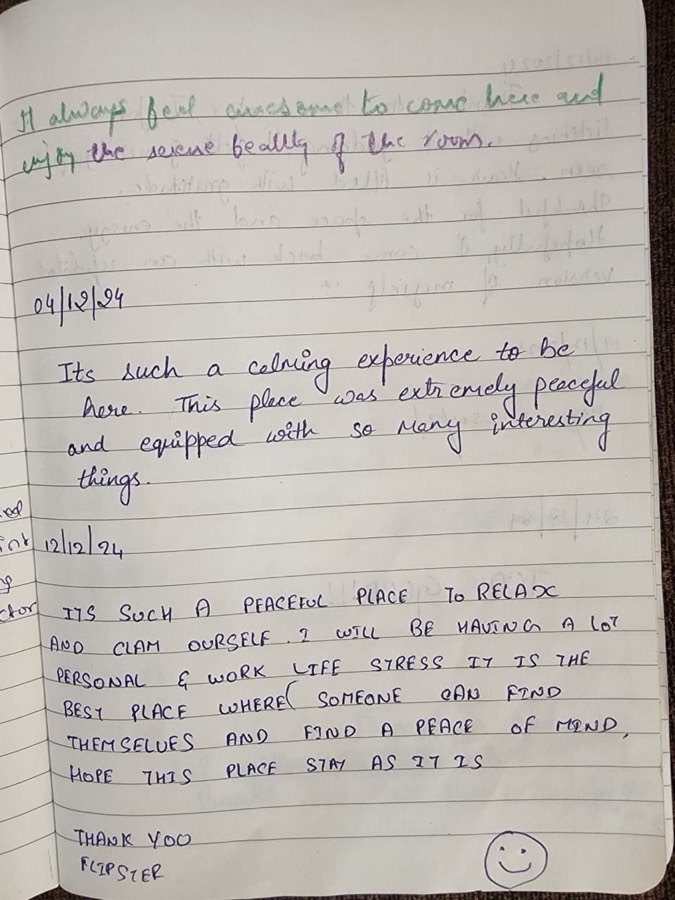 It always feel awesome to come here and
enjoy the serene beauty of the room.
04/12/24
Its such a calming experience to be
here. This place was extremely peaceful
and equipped with so many interesting
things.
12/12/24
ITS SUCH A PEACEFUL PLACE TO RELAX
AND CLAM OURSELF. I WILL BE HAVING A LOT
PERSONAL & WORK LIFE STRESS IT IS THE
BEST PLACE WHERE SOMEONE CAN FIND
THEMSELVES AND FIND A PEACE OF MIND.
HOPE THIS PLACE STAY AS IT IS
THANK YOU
FLIPSTER